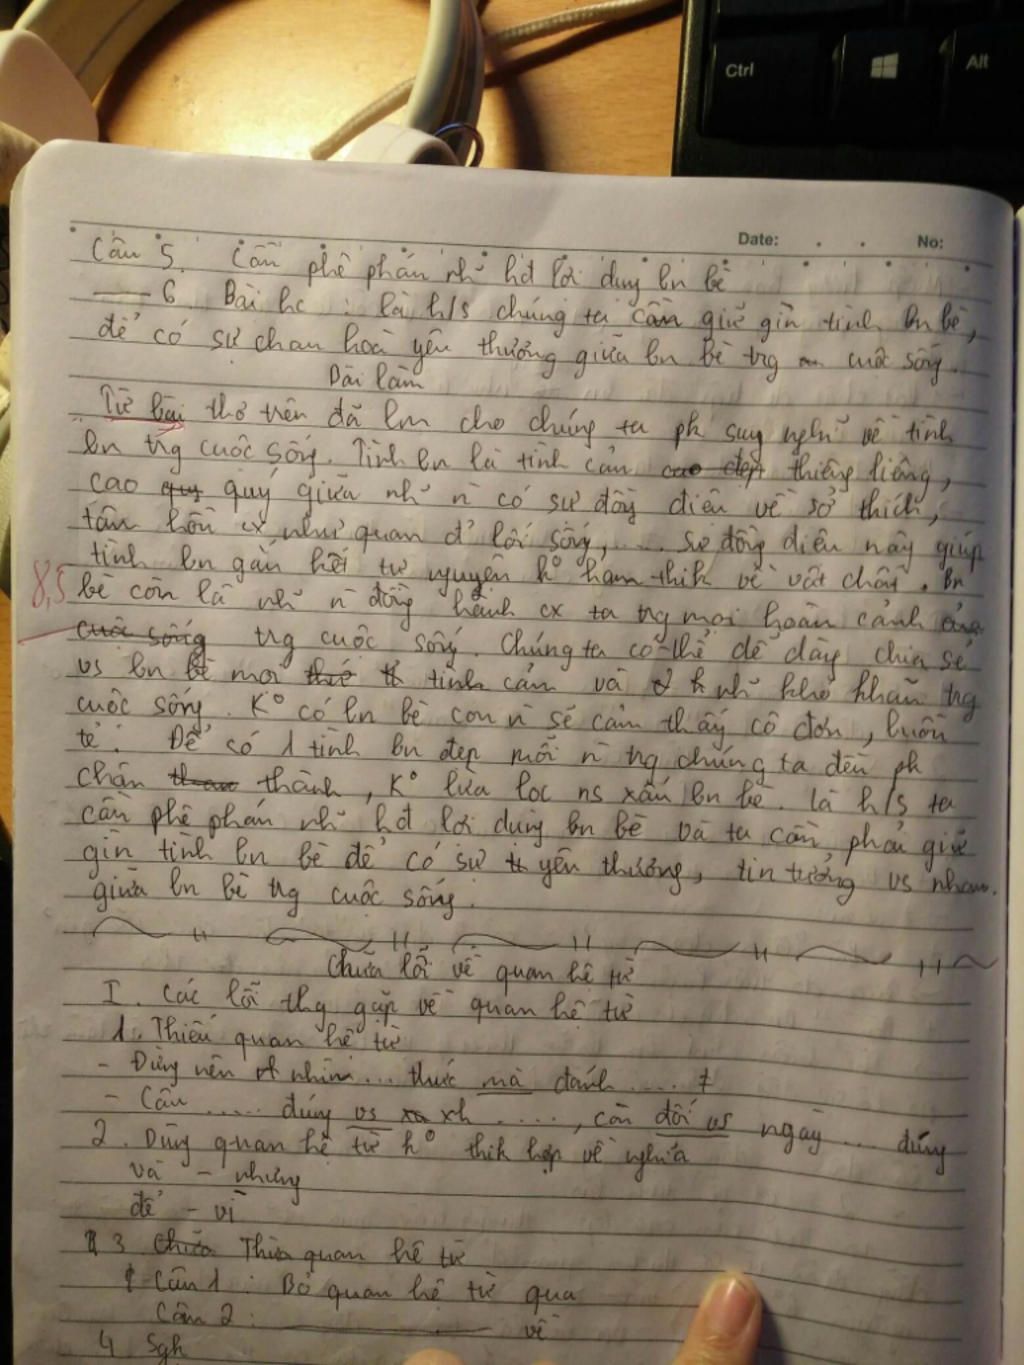 Ctrl
Alt
Date:
No:
Câu 5. Cần phê phán nh~ hđ lợi dụng bn bè
6. Bài hc : là h/s chúng ta cần giữ gìn tình bn bè,
để có sự chan hoà yêu thương giữa bn bè trg cuộc sống.
Bài làm
Từ bài thơ trên đã lm cho chúng ta ph suy nghĩ về tình
bn trg cuộc sống. Tình bn là tình cảm cao đẹp thiêng liêng,
cao quý quý giữa nh~ n` có sự đồng điệu về sở thích,
tâm hồn cx như quan đ' lối sống, .... sự đồng điệu này giúp
tình bn gắn kết tự nguyện k° ham thik về vật chất. Bn
8,5
bè còn là nh~ n` đồng hành cx ta trg mọi hoàn cảnh của
cuộc sống trg cuộc sống. Chúng ta có thể dễ dàng chia sẻ
vs bn bè mọi thứ th tình cảm và nh~ khó khăn trg
cuộc sống. K° có bn bè con n` sẽ cảm thấy cô đơn, buồn
tẻ. Để có 1 tình bn đẹp mỗi n` trg chúng ta đều ph
chân thành, k° lừa lọc ns xấu bn bè. Là h/s ta
cần phê phán nh~ hđ lợi dụng bn bè và ta cần phải giữ
gìn tình bn bè để có sự th yêu thương, tin tưởng vs nhau.
giữa bn bè trg cuộc sống.
Chữa lỗi về quan hệ từ
I. Các lỗi thg gặp về quan hệ từ
1. Thiếu quan hệ từ
- Đừng nên nhìn... thức mà đánh .... ≠
- Câu ..... đúng vs xh ....., còn đối vs ngày ... đúng
2. Dùng quan hệ từ k° thik hợp về nghĩa
và - nhưng
để - vì
3 Chữa Thừa quan hệ từ
Câu 1 : Bỏ quan hệ từ qua
Câu 2 : ———— về
4 Sgk